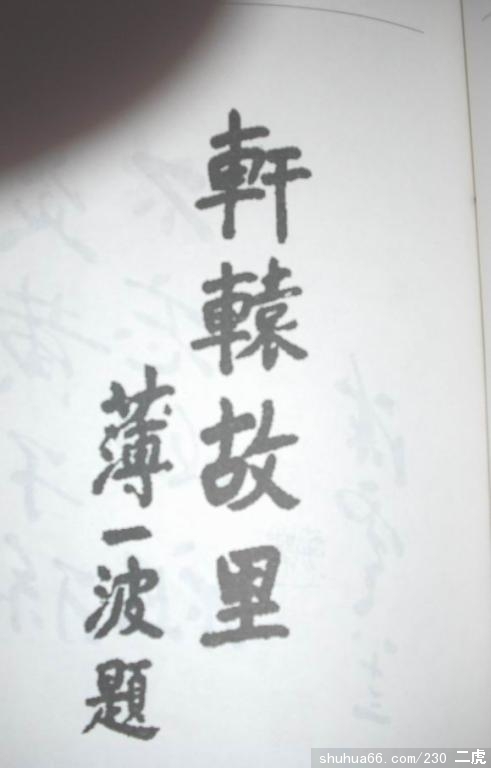 軒轅故里
薄一波題
shuhua66.com/230 二虎